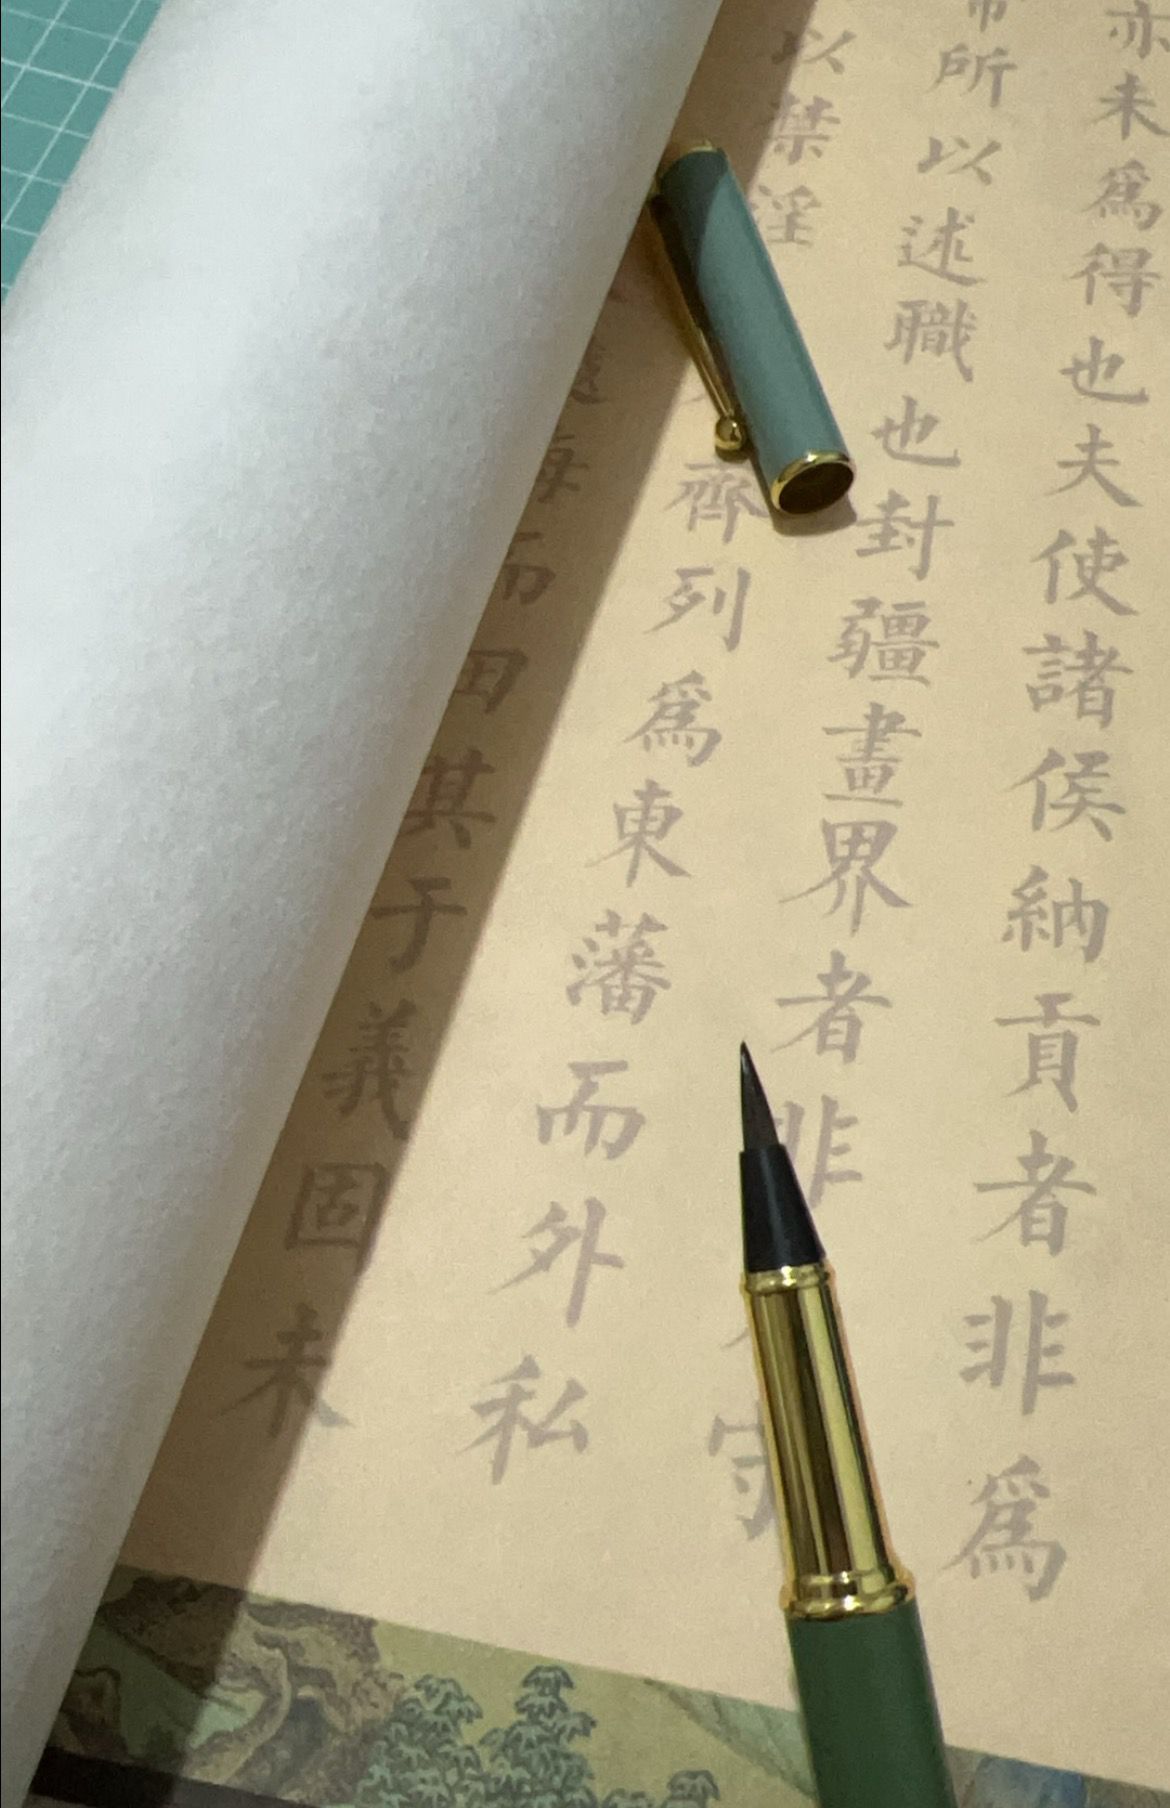 亦未為得也夫使諸侯納貢者非為
所以述職也封疆畫界者非守
以禁淫齊列為東藩而外私
而田其于義固未